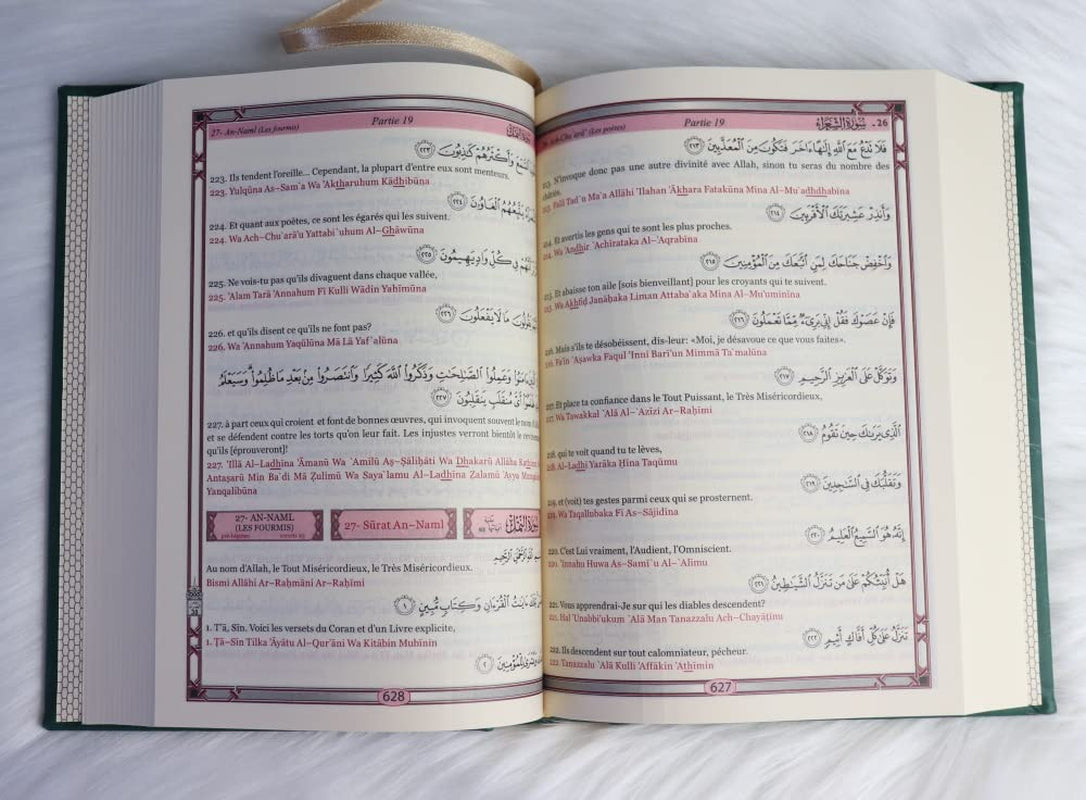 26 - سورة الشعراء
Partie 19
Ach-Chu`arâ' (Les poètes)
فَلَا تَدْعُ مَعَ اللَّهِ إِلَٰهًا ءَاخَرَ فَتَكُونَ مِنَ الْمُعَذَّبِينَ ٢١٣
213. N'invoque donc pas une autre divinité avec Allah, sinon tu seras du nombre des
châtiés.
213. Falā Tad`u Ma`a Allāhi 'Ilahan 'Ākhara Fatakūna Mina Al–Mu`adhdhabina
وَأَنذِرْ عَشِيرَتَكَ الْأَقْرَبِينَ ٢١٤
214. Et avertis les gens qui te sont les plus proches.
214. Wa 'Andhir `Achirataka Al–'Aqrabina
وَاخْفِضْ جَنَاحَكَ لِمَنِ اتَّبَعَكَ مِنَ الْمُؤْمِنِينَ ٢١٥
215. Et abaisse ton aile [sois bienveillant] pour les croyants qui te suivent.
215. Wa Akhfiḍ Janāḥaka Liman Attaba`aka Mina Al–Mu'uminina
فَإِنْ عَصَوْكَ فَقُلْ إِنِّي بَرِيءٌ مِّمَّا تَعْمَلُونَ ٢١٦
216. Mais s'ils te désobéissent, dis-leur: «Moi, je désavoue ce que vous faites».
216. Fa'in `Aṣawka Faqul 'Inni Bari'un Mimmā Ta`malūna
وَتَوَكَّلْ عَلَى الْعَزِيزِ الرَّحِيمِ ٢١٧
217. Et place ta confiance dans le Tout Puissant, le Très Miséricordieux,
217. Wa Tawakkal `Alá Al–`Azīzi Ar–Raḥīmi
الَّذِي يَرَاكَ حِينَ تَقُومُ ٢١٨
218. qui te voit quand tu te lèves,
218. Al–Ladhi Yarāka Ḥīna Taqūmu
وَتَقَلُّبَكَ فِي السَّاجِدِينَ ٢١٩
219. et (voit) tes gestes parmi ceux qui se prosternent.
219. Wa Taqallubaka Fi As–Sājidīna
إِنَّهُ هُوَ السَّمِيعُ الْعَلِيمُ ٢٢٠
220. C'est Lui vraiment, l'Audient, l'Omniscient.
220. 'Innahu Huwa As–Sami`u Al–`Alīmu
هَلْ أُنَبِّئُكُمْ عَلَىٰ مَن تَنَزَّلُ الشَّيَاطِينُ ٢٢١
221. Vous apprendrai-Je sur qui les diables descendent?
221. Hal 'Unabbi'ukum `Alá Man Tanazzalu Ach–Chayāṭīnu
تَنَزَّلُ عَلَىٰ كُلِّ أَفَّاكٍ أَثِيمٍ ٢٢٢
222. Ils descendent sur tout calomniateur, pécheur.
222. Tanazzalu `Alá Kulli 'Affākin 'Athimin
627
27- An-Naml (Les fourmis)
Partie 19
السَّمْعَ وَأَكْثَرُهُمْ كَاذِبُونَ ٢٢٣
223. Ils tendent l'oreille... Cependant, la plupart d'entre eux sont menteurs.
223. Yulqūna As–Sam`a Wa 'Aktharuhum Kādhibūna
يَتَّبِعُهُمُ الْغَاوُونَ ٢٢٤
224. Et quant aux poètes, ce sont les égarés qui les suivent.
224. Wa Ach–Chu`arā'u Yattabi`uhum Al–Ghāwūna
أَنَّهُمْ فِي كُلِّ وَادٍ يَهِيمُونَ ٢٢٥
225. Ne vois-tu pas qu'ils divaguent dans chaque vallée,
225. 'Alam Tará 'Annahum Fi Kulli Wādin Yahīmūna
يَقُولُونَ مَا لَا يَفْعَلُونَ ٢٢٦
226. et qu'ils disent ce qu'ils ne font pas?
226. Wa 'Annahum Yaqūlūna Mā Lā Yaf`alūna
ءَامَنُوا وَعَمِلُوا الصَّالِحَاتِ وَذَكَرُوا اللَّهَ كَثِيرًا وَانتَصَرُوا مِن بَعْدِ مَا ظُلِمُوا وَسَيَعْلَمُ
ظَلَمُوا أَيَّ مُنقَلَبٍ يَنقَلِبُونَ ٢٢٧
227. à part ceux qui croient et font de bonnes œuvres, qui invoquent souvent le nom
et se défendent contre les torts qu'on leur fait. Les injustes verront bientôt le
qu'ils [éprouveront]!
227. 'Illā Al–Ladhina 'Āmanū Wa `Amilū Aṣ–Ṣāliḥāti Wa Dhakarū Allāha
Antaṣarū Min Ba`di Mā Ẓulimū Wa Saya`lamu Al–Ladhina Zalamū 'Ayya
Yanqalibūna
27- AN-NAML
(LES FOURMIS)
27- Sūrat An–Naml
سورة النمل
بِسْمِ اللَّهِ الرَّحْمَٰنِ الرَّحِيمِ
Au nom d'Allah, le Tout Miséricordieux, le Très Miséricordieux.
Bismi Allāhi Ar–Raḥmāni Ar–Raḥīmi
تِلْكَ ءَايَاتُ الْقُرْءَانِ وَكِتَابٍ مُّبِينٍ ١
1. T'ā, Sīn. Voici les versets du Coran et d'un Livre explicite,
1. Ṭā–Sīn Tilka 'Āyātu Al–Qur'āni Wa Kitābin Mubīnin
وَبُشْرَىٰ لِلْمُؤْمِنِينَ ٢
628